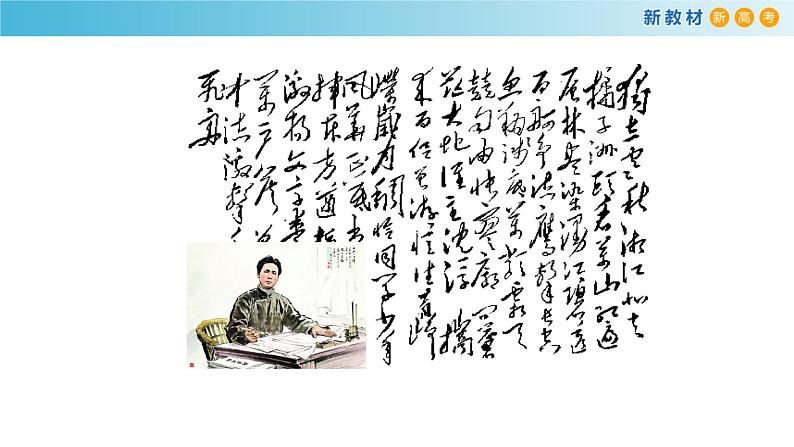 新教材 新高考
独立寒秋湘江北去
橘子洲头看万山红遍
层林尽染漫江碧透
百舸争流鹰击长空
鱼翔浅底万类霜天
竞自由怅寥廓问苍
茫大地谁主沉浮携
来百侣曾游忆往昔峥
嵘岁月稠恰同学少年
风华正茂书
挥斥方遒指
激扬文字粪
万户侯
飞舟